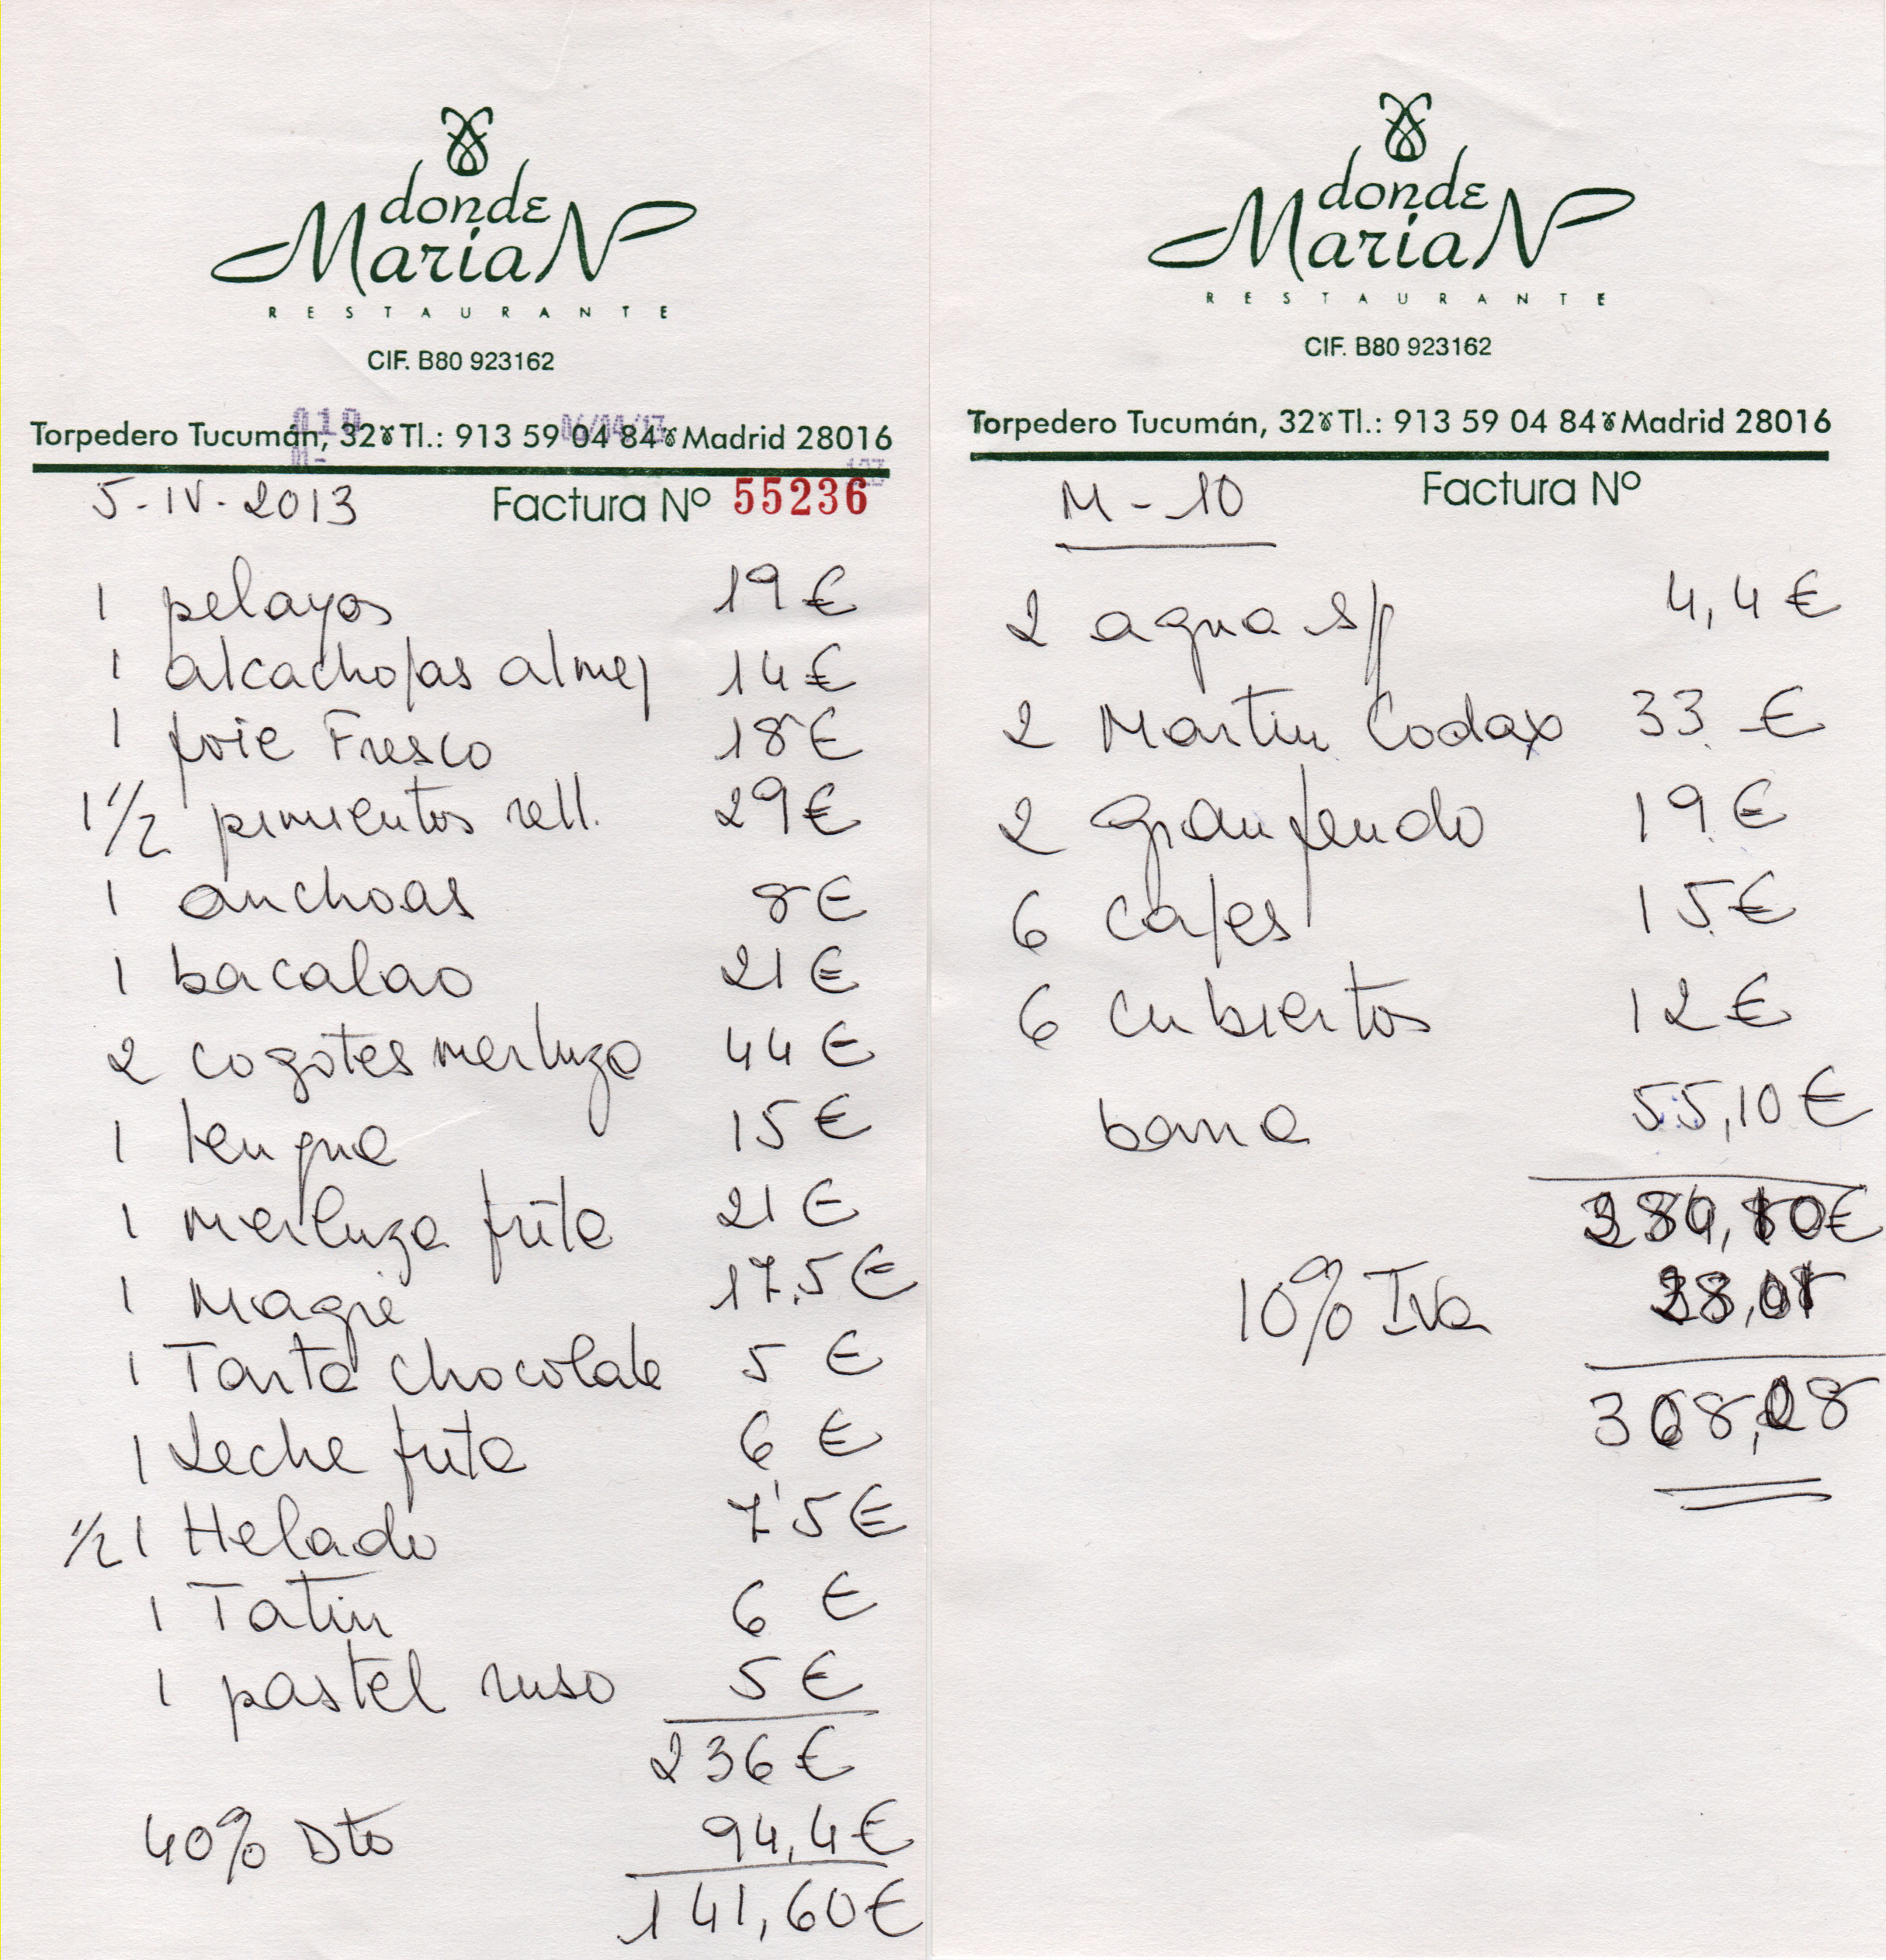 donde
MariaN
RESTAURANTE
CIF. B80 923162
Torpedero Tucumán, 32 Tl.: 913 59 04 84 Madrid 28016
5-IV-2013 Factura Nº 55236
1 pelayos 19€
1 alcachofas almej 14€
1 foie Fresco 18€
1 1/2 pimientos rell. 29€
1 anchoas 8€
1 bacalao 21€
2 cogotes merluza 44€
1 lengua 15€
1 merluza frita 21€
1 Magre 17,5€
1 Tarta chocolate 5 €
1 Leche frita 6 €
1/2 1 Helado 7'5€
1 Tatin 6 €
1 pastel ruso 5€
236€
40% Dto 94,4€
141,60€
donde
MariaN
RESTAURANTE
CIF. B80 923162
Torpedero Tucumán, 32 Tl.: 913 59 04 84 Madrid 28016
M-10 Factura Nº
2 agua s/p 4,4€
2 Martin Codax 33 €
2 granfeudo 19€
6 cafes 15€
6 cubiertos 12€
barra 55,10€
10% Iva